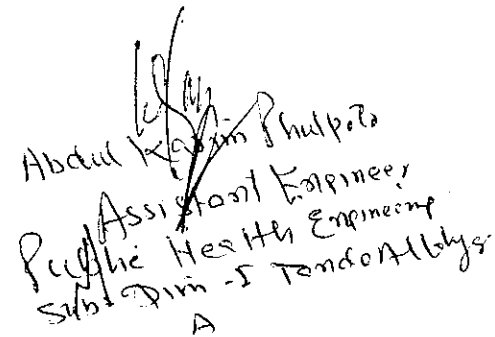 Abdul Karim Phulpoto
Assistant Engineer
Public Health Engineering
Sub-Divn-I Tando Allahyar
A